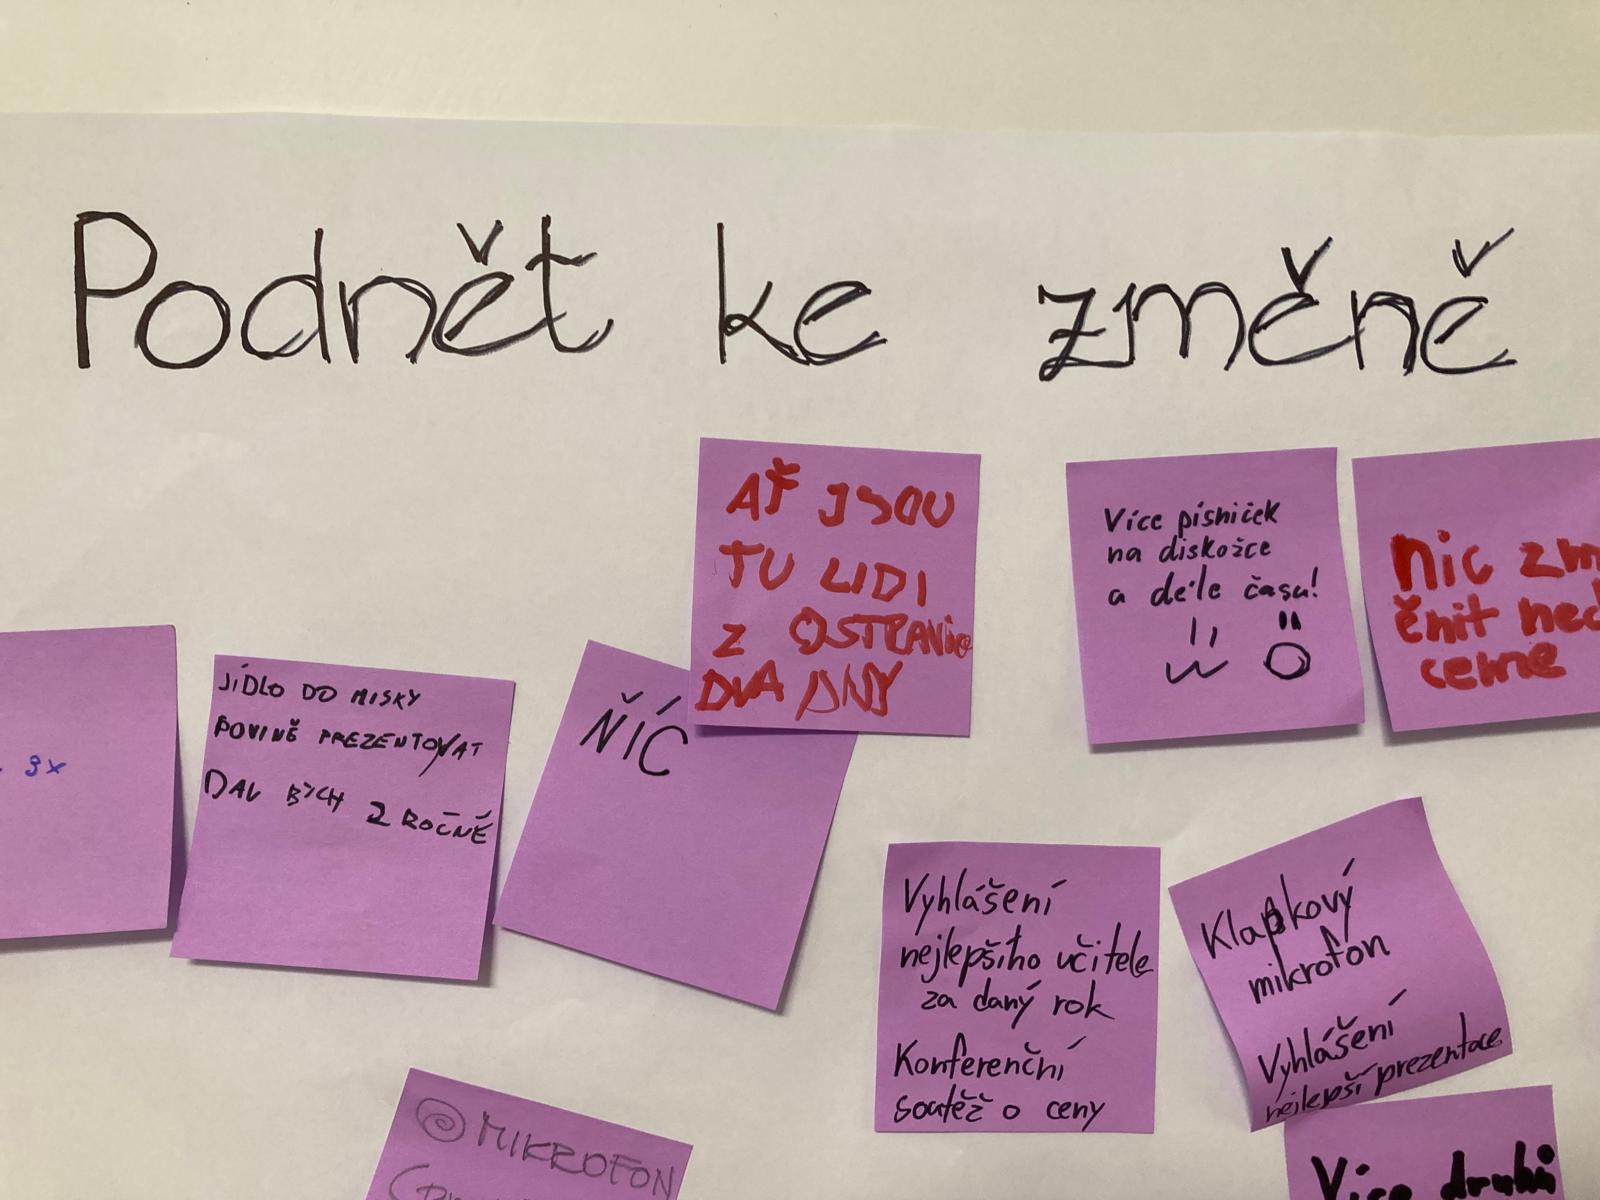 Podnět ke změně
AŤ JSOU
TU LIDI
Z OSTRANIC
DVA DNY
Více písniček
na diskožce
a déle času!
nic zm
ěnit nec
ceme
3x
JÍDLO DO MISKY
POVINĚ PREZENTOVAT
DAL BYCH 2 ROČNĚ
ŇÍC
Vyhlášení
nejlepšího učitele
za daný rok
Konferenční
soutěž o ceny
Klapkový
mikrofon
Vyhlášení
nejlepší prezentace
MIKROFON
Více druhů